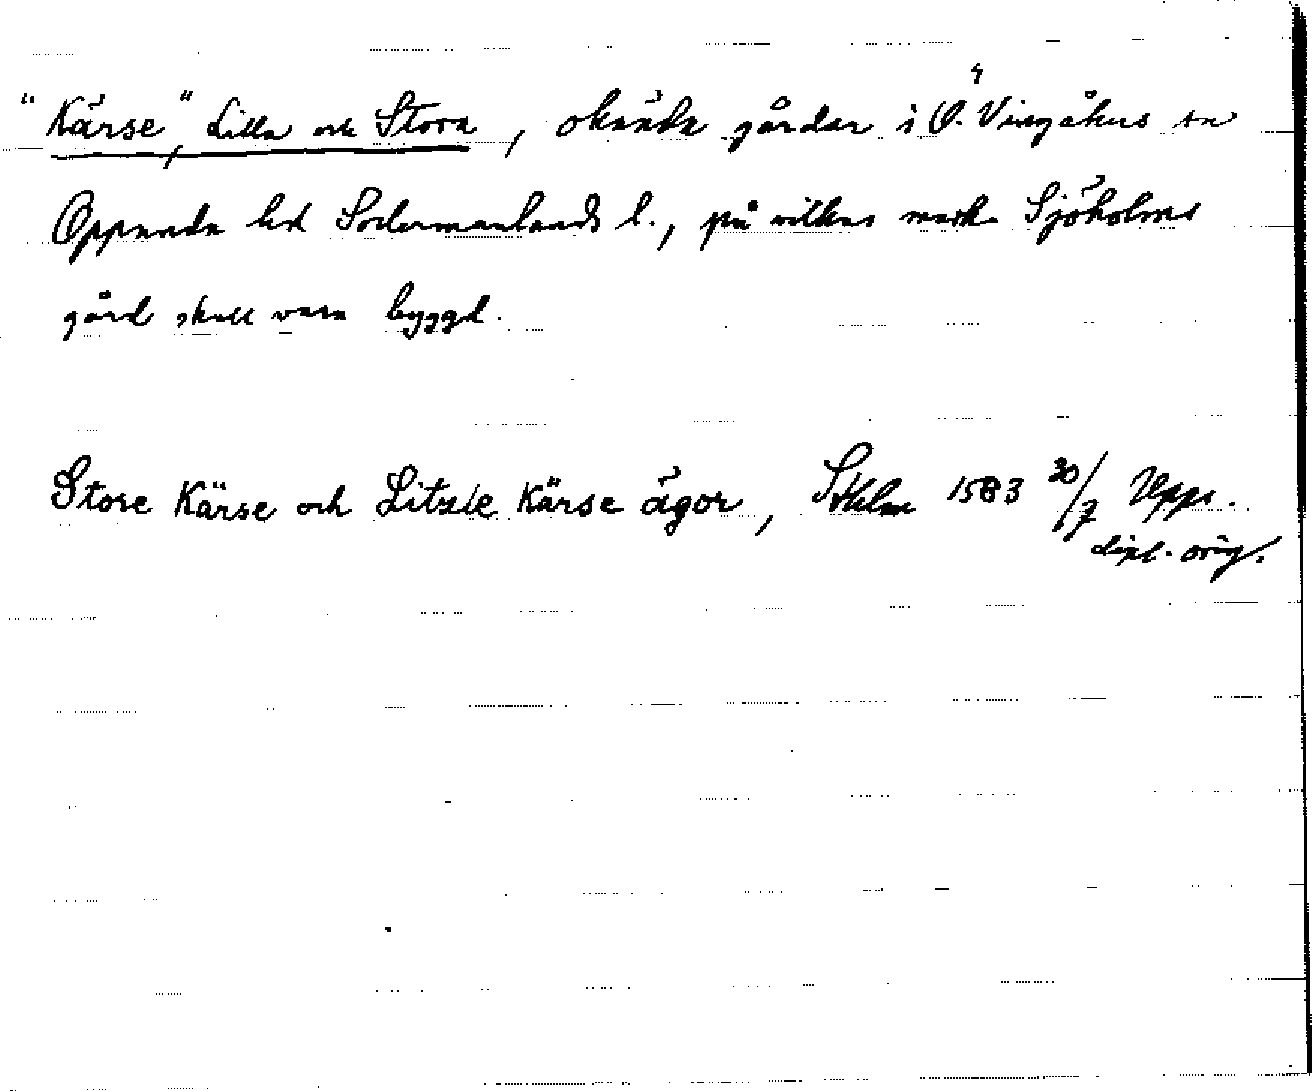 "Kärse", Lilla och Stora, okända gårdar i Ö. Vingåkers sn
Oppunda hd Södermanlands l., på vilkas mark Sjöholms
gård skall vara byggd.
Store Kärse och Litzle Kärse ägor, Sthlm 1583 30/7 Upps.
dipl. orig.